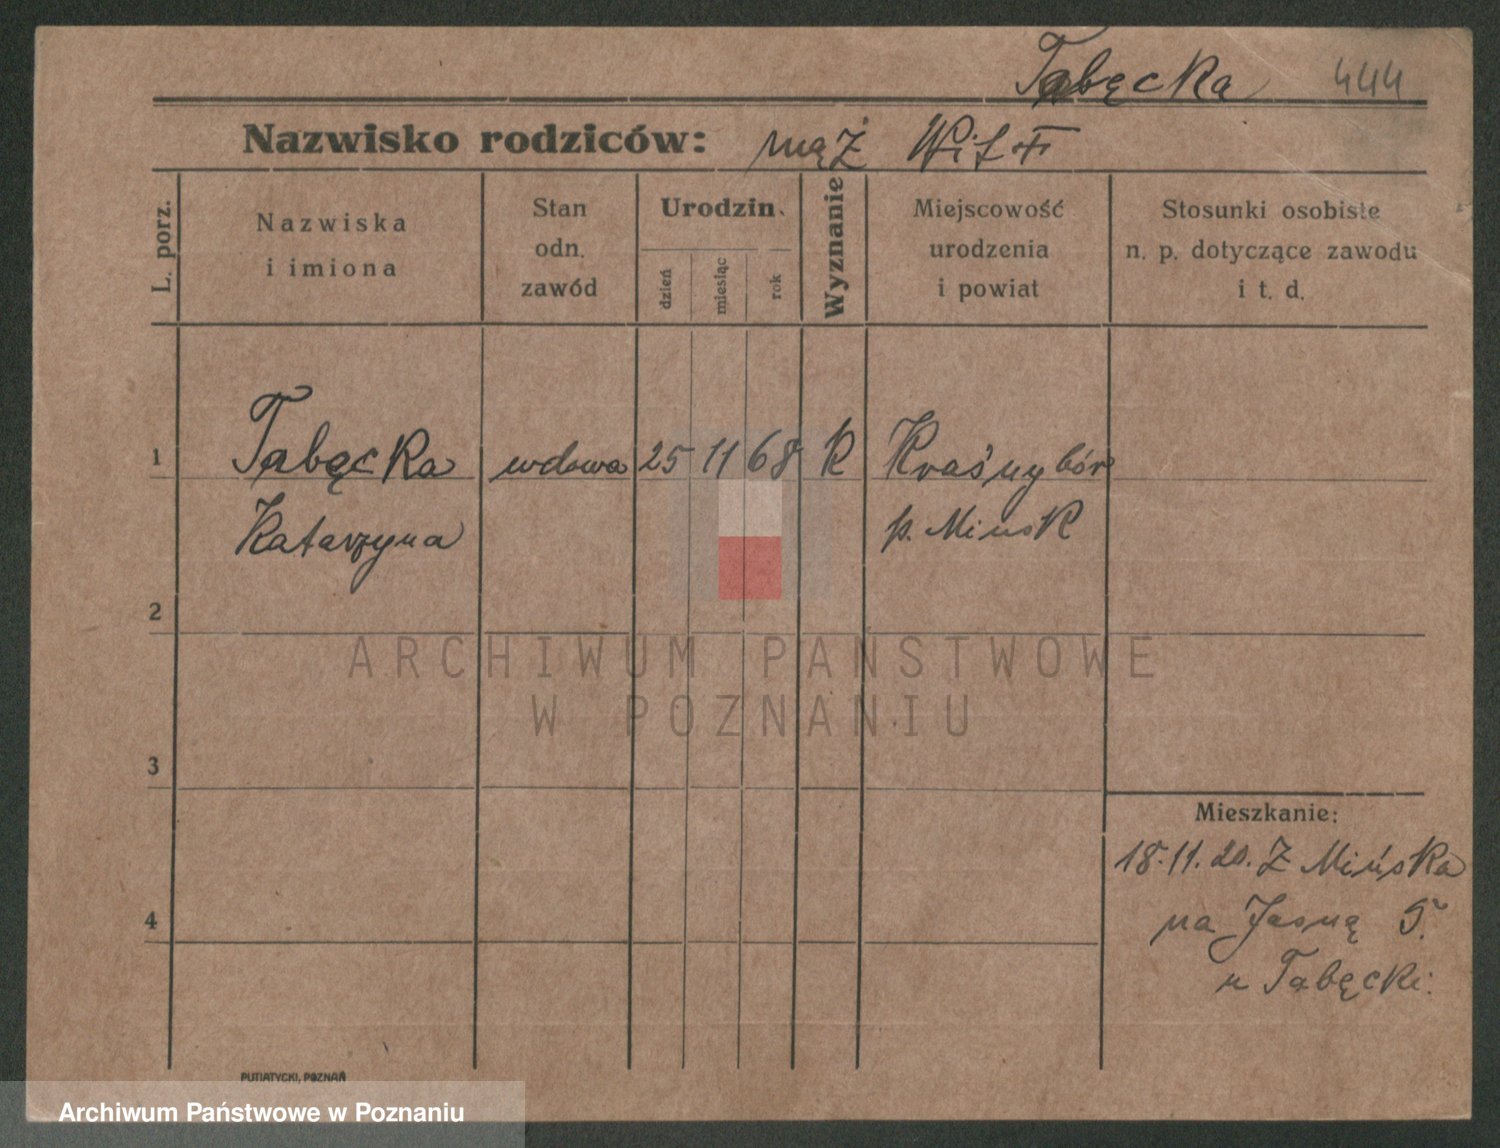 Tabęcka 444
Nazwisko rodziców: mąż
L. porz.
Nazwiska
i imiona
Stan
odn.
zawód
Urodzin.
dzień
miesiąc
rok
Wyznanie
Miejscowość
urodzenia
i powiat
Stosunki osobiste
n. p. dotyczące zawodu
i t. d.
1 Tabęcka wdowa 25 11 68 K Kraśnybór
Katarzyna p. Minsk
2
3
4
Mieszkanie:
18.11.20. Z Mińska
na Jasną 5.
u Tabęcki.
PUTIATYCKI, POZNAŃ
ARCHIWUM PAŃSTWOWE
W POZNANIU
Archiwum Państwowe w Poznaniu